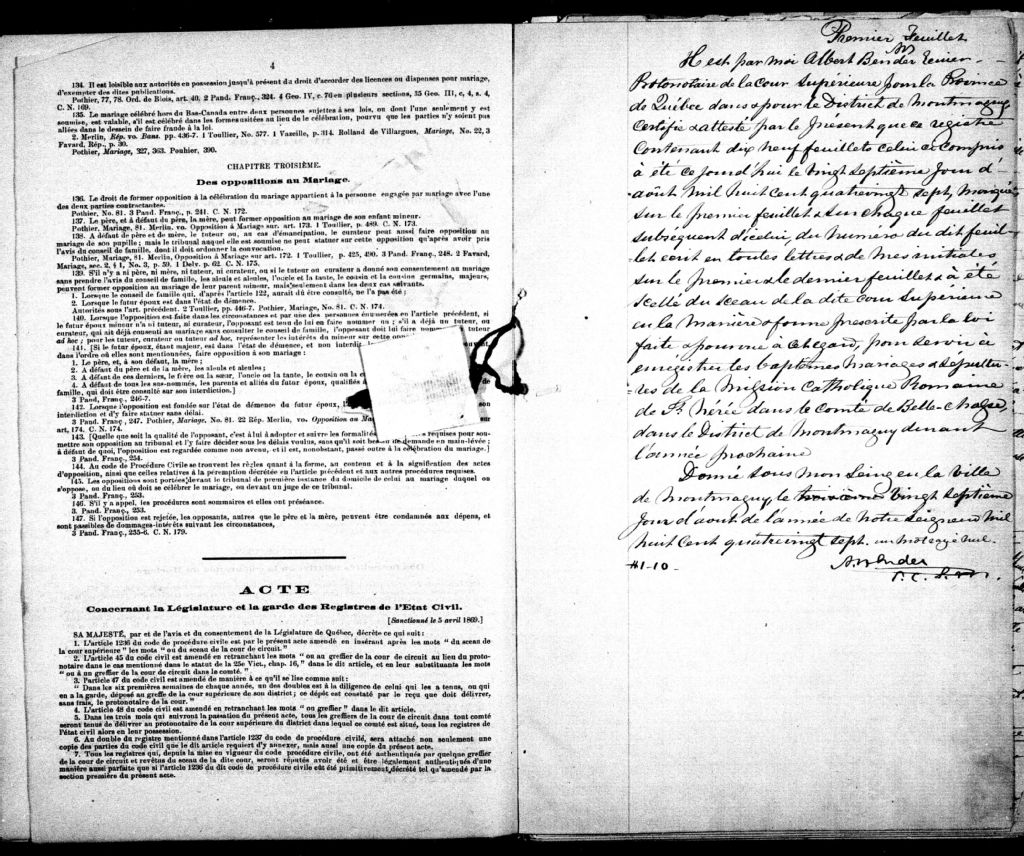 4
134. Il est loisible aux autorités en possession jusqu'à présent du droit d'accorder des licences ou dispenses pour mariage,
d'exempter des dites publications.
Pothier, 77, 78. Ord. de Blois, art. 40, 2 Pand. Franç., 324. 4 Geo. IV, c. 76 en plusieurs sections, 35 Geo. III, c. 4, s. 4,
C. N. 169.
135. Le mariage célébré hors du Bas-Canada entre deux personnes sujettes à ses lois, ou dont l'une seulement y est
soumise, est valable, s'il est célébré dans les formes usitées au lieu de la célébration, pourvu que les parties n'y soient pas
allées dans le dessein de faire fraude à la loi.
2 Merlin, Rép. vo. Bans, pp. 436-7. 1 Toullier, No. 577. 1 Vazeille, p. 314. Rolland de Villargues, Mariage, No. 22, 3
Favard, Rép., p. 30.
Pothier, Mariage, 327, 363. Pouhier, 390.
CHAPITRE TROISIÈME.
Des oppositions au Mariage.
136. Le droit de former opposition à la célébration du mariage appartient à la personne engagée par mariage avec l'une
des deux parties contractantes.
Pothier, No. 81. 3 Pand. Franç., p. 241. C. N. 172.
137. Le père, et à défaut du père, la mère, peut former opposition au mariage de son enfant mineur.
Pothier, Mariage, 81. Merlin, vo. Opposition à Mariage sur. art. 173. 1 Toullier, p. 489. C. N. 173.
138. A défaut de père et de mère, le tuteur ou, au cas d'émancipation, le curateur peut aussi faire opposition au
mariage de son pupille; mais le tribunal auquel elle est soumise ne peut statuer sur cette opposition qu'après avoir pris
l'avis du conseil de famille, dont il doit ordonner la convocation.
Pothier, Mariage, 81. Merlin, Opposition à Mariage sur art. 172. 1 Toullier, p. 425, 490. 3 Pand. Franç., 248. 2 Favard,
Mariage, sec. 2, § 1, No. 3, p. 59. 1 Delv. p. 62. C. N. 175.
139. S'il n'y a ni père, ni mère, ni tuteur, ni curateur, ou si le tuteur ou curateur a donné son consentement au mariage
sans prendre l'avis du conseil de famille, les aïeuls et aïeules, l'oncle et la tante, le cousin et la cousine germains, majeurs,
peuvent former opposition au mariage de leur parent mineur, mais seulement dans les deux cas suivants.
1. Lorsque le conseil de famille qui, d'après l'article 122, aurait dû être consulté, ne l'a pas été;
2. Lorsque le futur époux est dans l'état de démence.
Autorités sous l'art. précédent. 2 Toullier, pp. 446-7. Pothier, Mariage, No. 81. C. N. 174.
140. Lorsque l'opposition est faite dans les circonstances et par une des personnes énumérées en l'article précédent, si
le futur époux mineur n'a ni tuteur, ni curateur, l'opposant est tenu de lui en faire nommer un; s'il a déjà un tuteur, ou
curateur, qui ait déjà consenti au mariage sans consulter le conseil de famille, l'opposant doit lui faire nommer un tuteur
ad hoc; pour les tuteur, curateur ou tuteur ad hoc, représenter les intérêts du mineur sur cette
141. [Si le futur époux, étant majeur, est dans l'état de démence, et non interdit
dans l'ordre où elles sont mentionnées, faire opposition à son mariage:
1. Le père, et, à son défaut, la mère;
2. A défaut du père et de la mère, les aïeuls et aïeules;
3. A défaut de ces derniers, le frère ou la sœur, l'oncle ou la tante, le cousin ou la
4. A défaut de tous les sus-nommés, les parents et alliés du futur époux, qualifiés de fa-
mille, qui doit être consulté sur son interdiction.]
3 Pand. Franç., 246-7.
142. Lorsque l'opposition est fondée sur l'état de démence du futur époux, son
interdiction et d'y faire statuer sans délai.
3 Pand. Franç., 247. Pothier, Mariage, No. 81. 22 Rép. Merlin, vo. Opposition au
art. 174. C. N. 174.
143. [Quelle que soit la qualité de l'opposant, c'est à lui à adopter et suivre les formalités requises pour sou-
mettre son opposition au tribunal et l'y faire décider sous les délais voulus, sans qu'il soit besoin de demande en main-levée;
à défaut de quoi, l'opposition est regardée comme non avenu, et il est, nonobstant, passé outre à la célébration du mariage.]
3 Pand. Franç., 254.
144. Au code de Procédure Civile se trouvent les règles quant à la forme, au contenu et à la signification des actes
d'opposition, ainsi que celles relatives à la péremption décrétée en l'article précédent et aux autres procédures requises.
145. Les oppositions sont portées devant le tribunal de première instance du domicile de celui au mariage duquel on
s'oppose, ou du lieu où doit se célébrer le mariage, ou devant un juge de ce tribunal.
3 Pand. Franç., 253.
146. S'il y a appel, les procédures sont sommaires et elles ont préséance.
3. Pand. Franç., 253.
147. Si l'opposition est rejetée, les opposants, autres que le père et la mère, peuvent être condamnés aux dépens, et
sont passibles de dommages-intérêts suivant les circonstances,
3 Pand. Franç., 235-6. C. N. 179.
ACTE
Concernant la Législature et la garde des Registres de l'Etat Civil.
[Sanctionné le 5 avril 1869.]
SA MAJESTÉ, par et de l'avis et du consentement de la Législature de Québec, décrète ce qui suit:
1. L'article 1236 du code de procédure civile est par le présent acte amendé en insérant après les mots " du sceau de
la cour supérieure " les mots " ou du sceau de la cour de circuit."
2. L'article 45 du code civil est amendé en retranchant les mots " ou au greffier de la cour de circuit au lieu du proto-
notaire dans le cas mentionné dans le statut de la 25e Vict., chap. 16, " dans le dit article, et en leur substituant les mots
" ou à un greffier de la cour de circuit dans le comté. "
3. Particle 47 du code civil est amendé de manière à ce qu'il se lise comme suit:
" Dans les six premières semaines de chaque année, un des doubles est à la diligence de celui qui les a tenus, ou qui
en a la garde, déposé au greffe de la cour supérieure de son district; ce dépôt est constaté par le reçu que doit délivrer,
sans frais, le protonotaire de la cour. "
4. L'article 48 du code civil est amendé en retranchant les mots " ou greffier " dans le dit article.
5. Dans les trois mois qui suivront la passation du présent acte, tous les greffiers de la cour de circuit dans tout comté
seront tenus de délivrer au protonotaire de la cour supérieure du district dans lequel ce comté est situé, tous les registres de
l'état civil alors en leur possession.
6. Au double du registre mentionné dans l'article 1237 du code de procédure civile, sera attaché non seulement une
copie des parties du code civil que le dit article requiert d'y annexer, mais aussi une copie du présent acte.
7. Tous les registres qui, depuis la mise en vigueur du code procédure civile, ont été authentiqués par quelque greffier
de la cour de circuit et revêtus du sceau de la dite cour, seront réputés avoir été et être légalement authentiqués d'une
manière aussi parfaite que si l'article 1236 du dit code de procédure civile eût été primitivement décrété tel qu'amendé par la
section première du présent acte.
Premier Feuillet
Il est par moi Albert Bender Ecuier
Protonotaire de la Cour Supérieure pour la Province
de Québec dans & pour le District de Montmagny
Certifié & attesté par le présent que ce registre
Contenant dix neuf feuillets celui ci compris
à été ce jourd'hui le vingt septième jour d'
août Mil huit Cent quatrevingt sept, marqué
sur le premier feuillet & sur chaque feuillet
subsequent d'icelui, du numero du dit feuil-
let ecrit en toutes lettres & de mes initiales
sur le premier & le dernier feuillet & à été
scellé du sceau de la dite cour Supérieure
en la manière & forme prescrite par la loi
faite & pourvue à cet egard, pour servir à
enregistrer les baptemes mariages & sépultu-
res de la mission Catholique Romaine
de St. Nérée dans le Comté de Belle-chasse
dans le District de Montmagny durant
l'année prochaine
Donné sous mon seing en la ville
de Montmagny, le vingt septième
jour d'aout de l'année de notre seigneur mil
huit cent quatrevingt sept. un mot rayé nul.
#1-10 A. Bender
P. C. S. M.